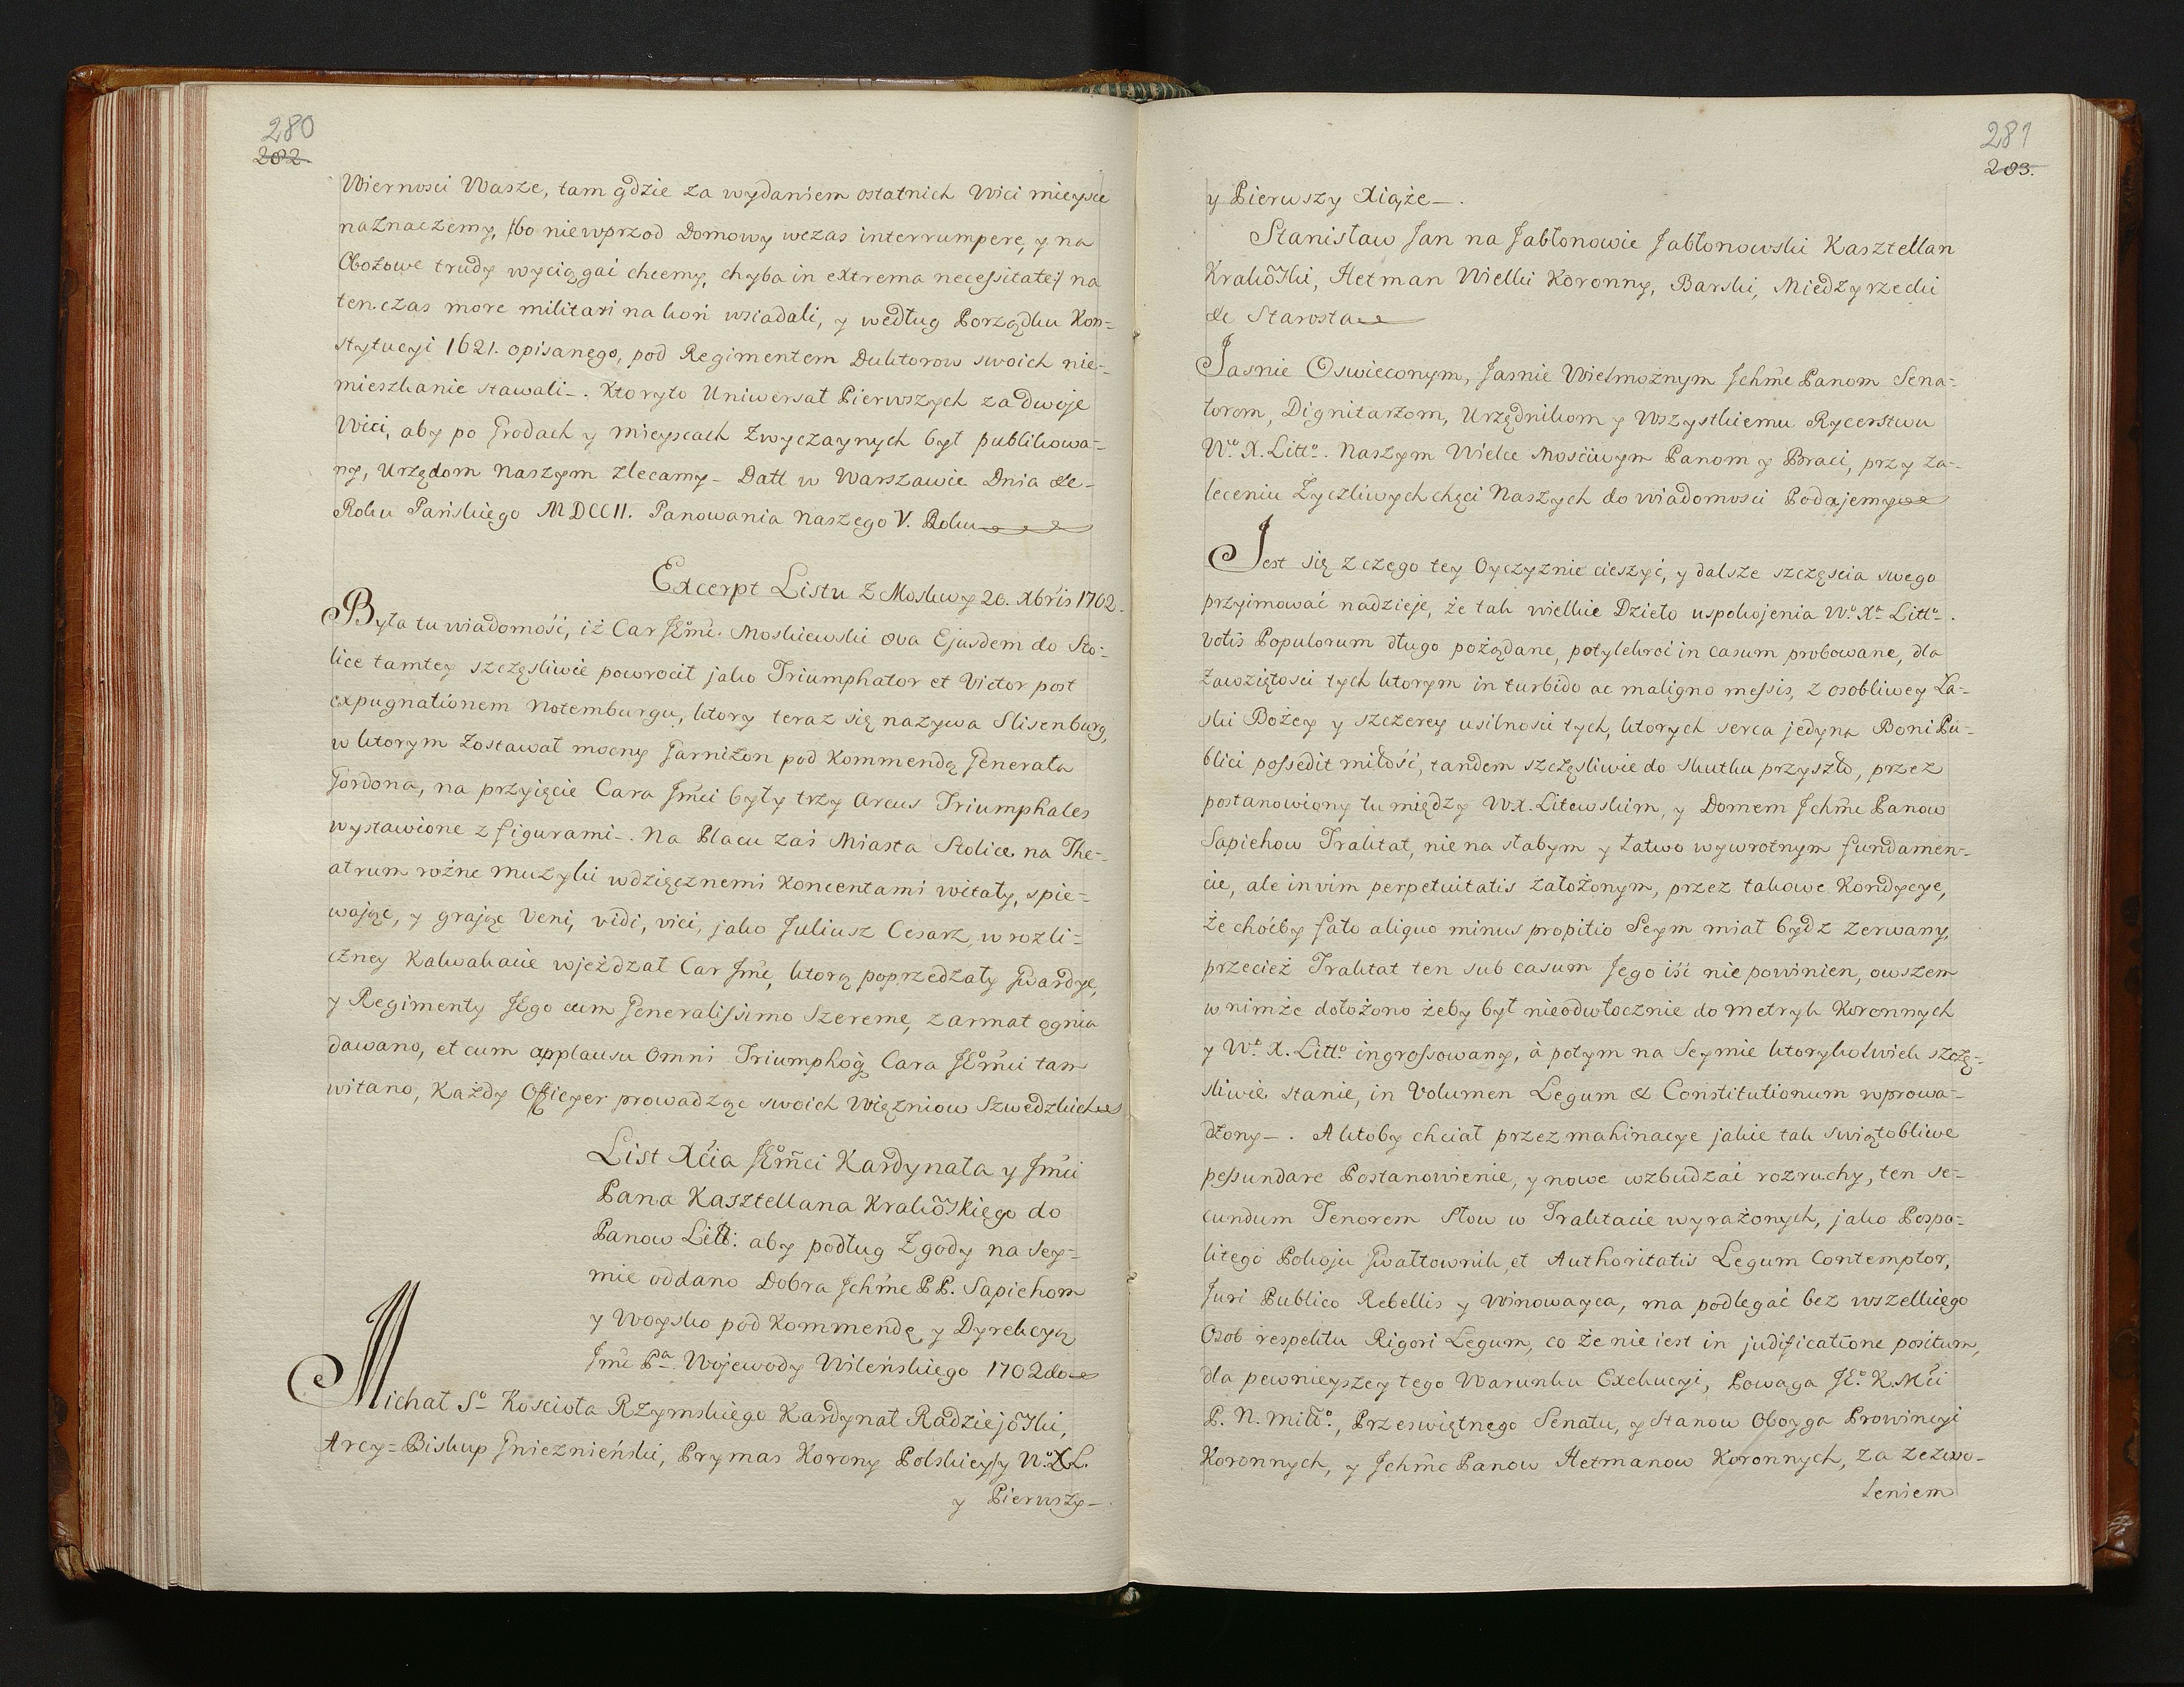 280
202.
Wiernosci Wasze, tam gdzie za wydaniem ostatnich Wici mieysce
naznaczemy, /:bo niewprzod Domowy wczas interrumpere, y na
Obozowe trudy wyciągać chcemy, chyba in extrema necessitate:/ na
ten czas more militari na koń wsiadali, y według Porządku Kon=
stytucyi 1621. opisanego, pod Regimentem Duktorow swoich nie=
mieszkanie stawali_. Ktoryto Uniwersał Pierwszych za dwoje
Wici, aby po Grodach y mieyscach zwyczaynych był publikowa=
ny, Urzędom Naszym zlecamy_ Datt w Warszawie Dnia &c_
Roku Pańskiego MDCCII. Panowania Naszego V. Roku
Excerpt Listu z Moskwy 20. Xbris 1702.
Była tu wiadomość, iż Car JEmć. Moskiewski ova Ejusdem do Sto=
lice tamtey szczęsliwie powrocił jako Triumphator et Victor post
expugnationem Notemburgu, ktory teraz się nazywa Slisenburg,
w ktorym zostawał mocny Garnizon pod Kommendą Generała
Gordona, na przyięcie Cara Jmći były trzy Arcus Triumphales
wystawione z figurami_. Na Placu zaś Miasta Stolice na The=
atrum rożne muzyki wdzięcznemi Koncentami witały, spie=
wając, y grając Veni, vidi, vici, jako Juliusz Cesarz, w rozli=
czney Kalwakacie wjeżdzał Car Jmć, ktorą poprzedzały Gwardye,
y Regimenty JEgo cum Generalissimo Szereme, z armat ognia
dawano, et cum applausu omni Triumphoq̃ Cara JEmći tam
witano, Każdy Officyer prowadząc swoich Więzniow Szwedzkich
List Xćia JEm̃ci Kardynała y Jmći
Pana Kasztellana Krakõskiego do
Panow Litt: aby podług Zgody na Sey=
mie oddano Dobra Jchm̃c PP. Sapiehom
y Woysko pod Kommendę y Dyrekcyą
Jmć Pa. Wojewody Wileńskiego 1702do
Michał So Koscioła Rzymskiego Kardynał Radziejõski,
Arcy=Biskup Gnieznieński, Prymas Korony Polskiey y W.X.L.
y Pierwszy_.
281
203.
y Pierwszy Xiąże_.
Stanisław Jan na Jabłonowie Jabłonowski Kasztellan
Krakõski, Hetman Wielki Koronny, Barski, Miedzyrzecki
&c Starosta
Jasnie Oswieconym, Jasnie Wielmożnym Jchm̃c Panom Sena=
torom, Dignitarzom, Urzędnikom y Wszystkiemu Rycerstwu
Wo. X. Litto. Naszym Wielce Mosciwym Panom y Braci, przy za=
leceniu Życzliwych chęci Naszych do wiadomosci Podajemy
Jest się z czego tey Oyczyznie cieszyć, y dalsze szczęscia swego
przyimować nadzieje, że tak wielkie Dzieło uspokojenia Wo. Xa Litto_.
votis Populorum długo pożądane, potylekroć in casum probowane, dla
Zawziętosci tych ktorym in turbido ac maligno messis, z osobliwey Ła=
ski Bożey y szczerey usilnosci tych, ktorych serca jedyna Boni Pu=
blici possedit miłość, tandem szczęsliwie do skutku przyszło, przez
postanowiony tu między W.X. Litewskim, y Domem Jchm̃c Panow
Sapiehow Traktat, nie na słabym y łatwo wywrotnym fundamen=
cie, ale in vim perpetuitatis założonym, przez takowe Kondycye,
że choćby fato aliquo minus propitio Seym miał bydz zerwany,
przecież Traktat ten sub casum Jego iść nie powinien, owszem
w nimże dołożono żeby był nieodwłocznie do Metryk Koronnych
y Wo. X. Litto. ingrossowany, à potym na Seymie ktorykolwiek szczę=
sliwie stanie, in Volumen Legum & Constitutionum wprowa=
dzony_. A ktoby chciał przez mahinacye jakie tak swiątobliwe
pessundare Postanowienie, y nowe wzbudzać rozruchy, ten se=
cundum Tenorem Słow w Traktacie wyrażonych, jako Pospo=
litego Pokoju Gwałtownik, et Authoritatis Legum Contemptor,
Juri Publico Rebellis y Winowayca, ma podlegać bez wszelkiego
Osob respektu Rigori Legum, co że nie iest in judificatione positum,
dla pewnieyszey tego Warunku Exekucyi, Powaga JEo. K. Mći
P. N. Miłto., Przeswiętnego Senatu, y Stanow Oboyga Prowincyi
Koronnych, y Jchm̃c Panow Hetmanow Koronnych, za zezwo_
leniem